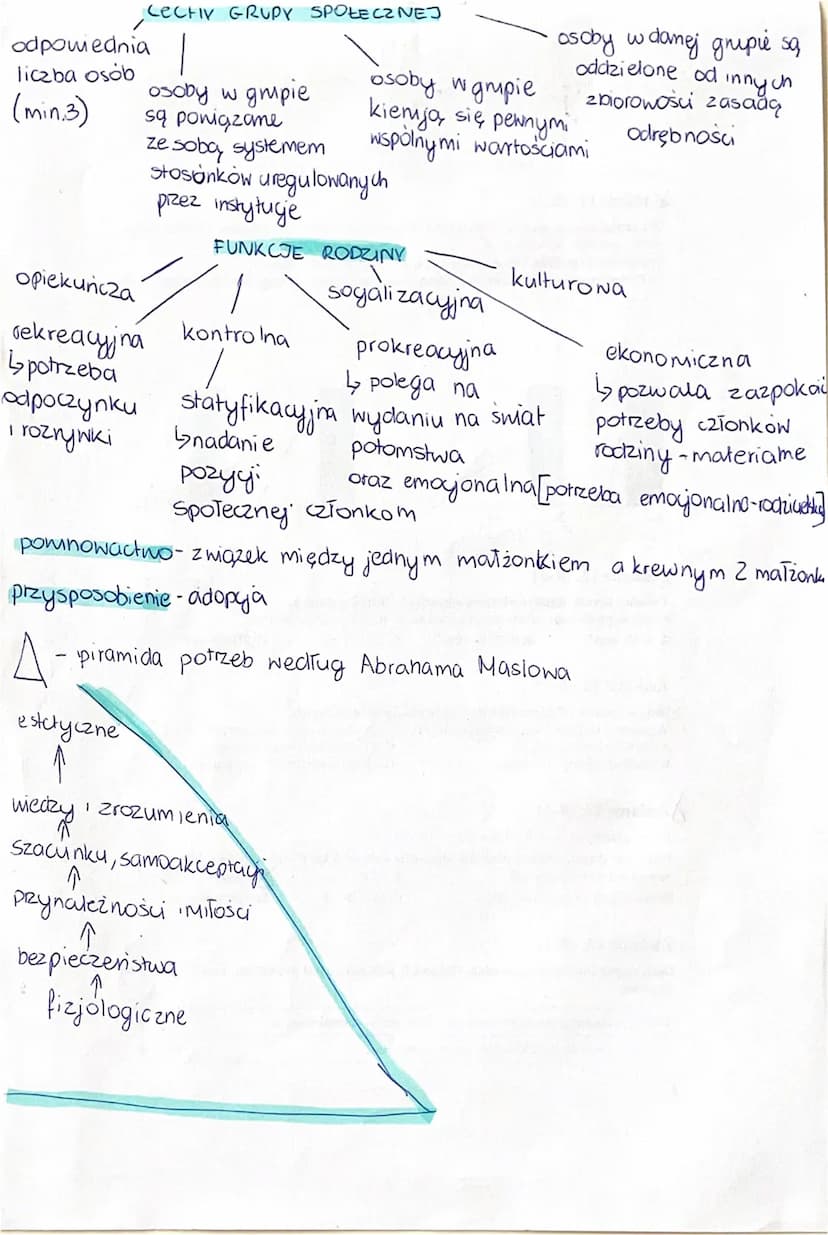 CECHY GRUPY SPOŁECZNEJ
odpowiednia
liczba osób
(min.3)
osoby w grupie
są powiązane
ze sobą systemem
stosunków uregulowanych
przez instytucje
osoby w grupie
kierują się pewnymi
wspólnymi wartościami
osoby w danej grupie są
oddzielone od innych
zbiorowości zasadą
odrębności
FUNKCJE RODZINY
opiekuńcza
rekreacyjna
↳ potrzeba
odpoczynku
i rozrywki
kontrolna
statyfikacyjna
↳ nadanie
pozycji
społecznej członkom
socjalizacyjna
prokreacyjna
↳ polega na
wydaniu na świat
potomstwa
oraz emocjonalna [potrzeba emocjonalno-rodzicielska]
kulturowa
ekonomiczna
↳ pozwala zazpokoić
potrzeby członków
rodziny - materialne
powinowactwo - związek między jednym małżonkiem a krewnym 2 małżonk
przysposobienie - adopcja
△ - piramida potrzeb według Abrahama Maslowa
estetyczne
↑
wiedzy i zrozumienia
↑
szacunku, samoakceptacji
↑
przynależności i miłości
↑
bezpieczeństwa
↑
fizjologiczne